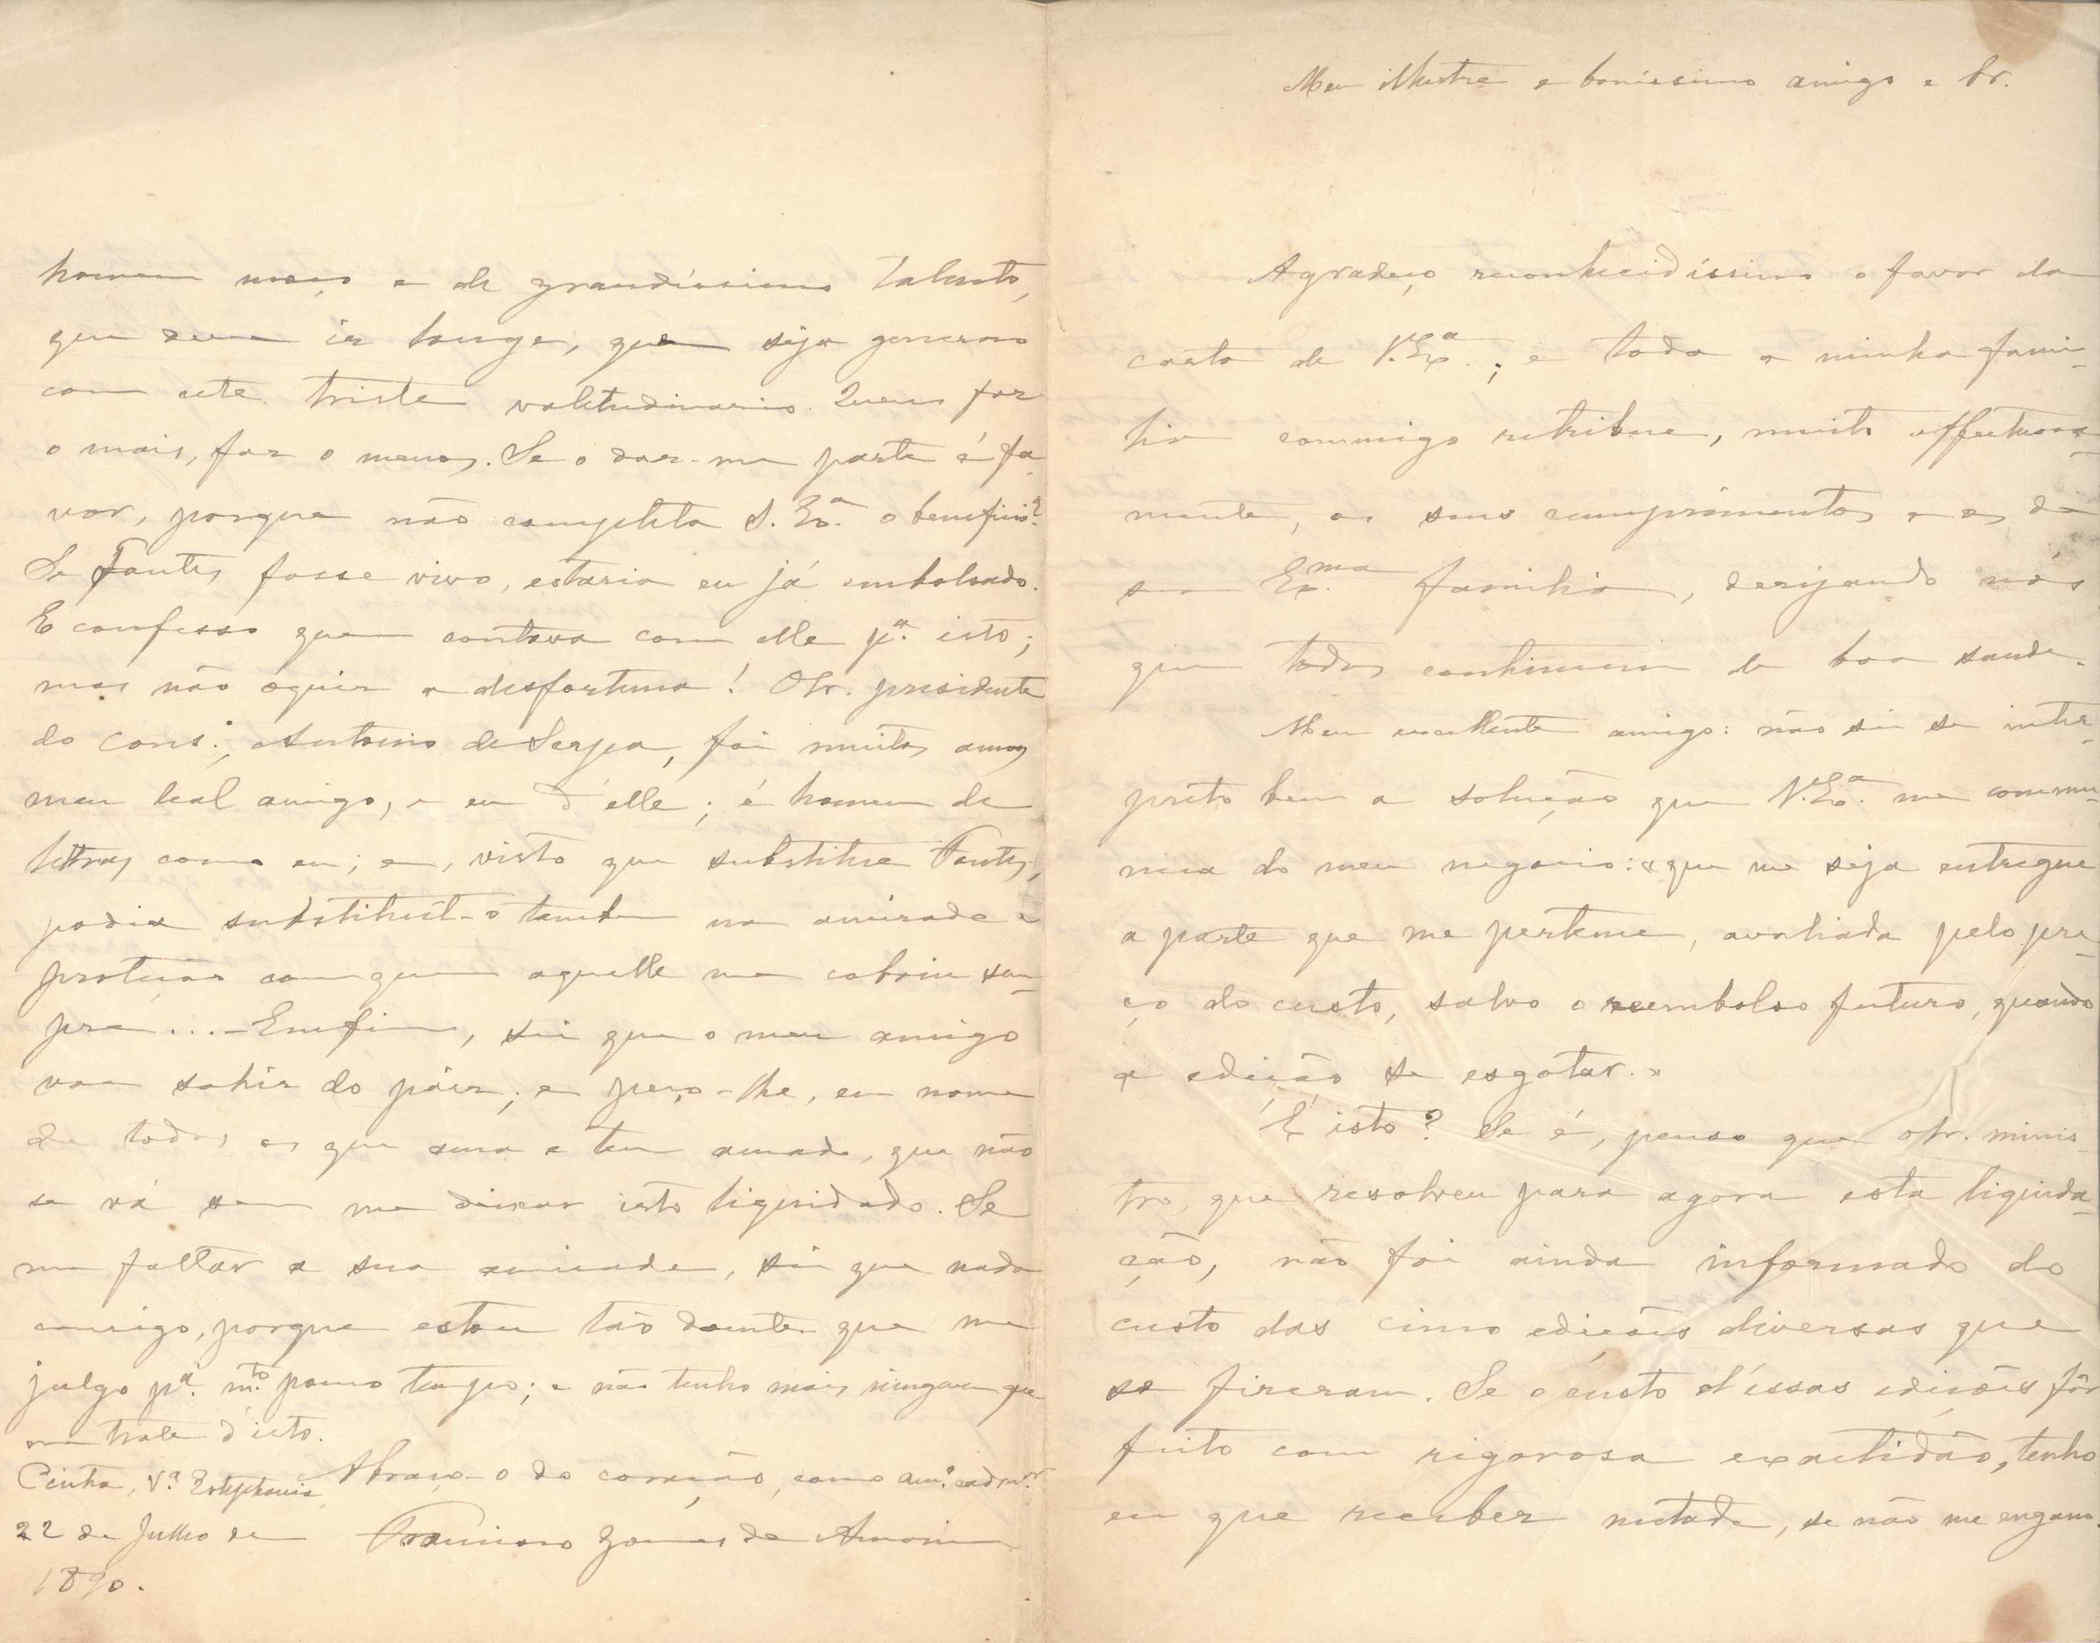 Meu illustre e bonissimo amigo e sr.
Agradeço reconhecidissimo o favor da
carta de V. Ex.ª; e toda a minha fami-
lia commigo retribue, muito affectuosa-
mente, os seus cumprimentos e os da
sua Ex.ma familia, desejando nós
que todos continuem de boa saude.
Meu excellente amigo: não sei se inter-
preto bem a solução que V. Ex.ª me commu-
nica do meu negocio: «que me seja entregue
a parte que me pertence, avaliada pelo pre-
ço do custo, salvo o reembolso futuro, quando
a edição se esgotar.»
É isto? Se é, penso que o sr. minis-
tro, que resolveu para agora esta liquida-
ção, não foi ainda informado do
custo das cinco edições diversas que
se fizeram. Se o custo d'essas edições fôr
feito com rigorosa exactidão, tenho
eu que receber metade, se não me engano
homem moço e de grandissimo talento,
que deve ir longe, que seja generoso
com este triste valetudinario. Quem faz
o mais, faz o menos. Se o dar-me parte é fa-
vor, porque não completa S. Ex.ª o beneficio?
Se Fontes fosse vivo, estaria eu já embolsado.
E confesso que contava com elle p.ª isto;
mas não o quiz a desfortuna! O sr. presidente
do cons.º, Antonio de Serpa, foi muitos annos
meu leal amigo, e eu d'elle; é homem de
lettras como eu; e, visto que substitue Fontes,
podia substituil-o tambem na amizade e
protecção com que aquelle me cobriu sem-
pre.... Emfim, sei que o meu amigo
vae sahir do páiz; e peço-lhe, em nome
de todos os que ama e tem amado, que não
se vá sem me deixar isto liquidado. Se
me faltar a sua amizade, sei que nada
consigo, porque estou tão doente que me
julgo p.ª m.to pouco tempo; e não tenho mais ninguem que
me trate d'isto.
Abraço-o do coração, como am.º e adm.or
Cintra, V.ª Estephania
22 de Julho de
1890.
Francisco Gomes de Amorim